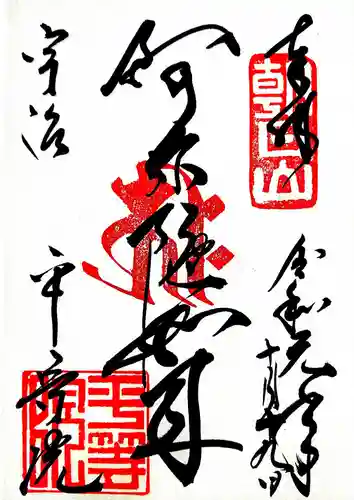 奉拝
朝日山
令和元年
十月十九日
阿弥陀如来
宇治
平等院
平等院印